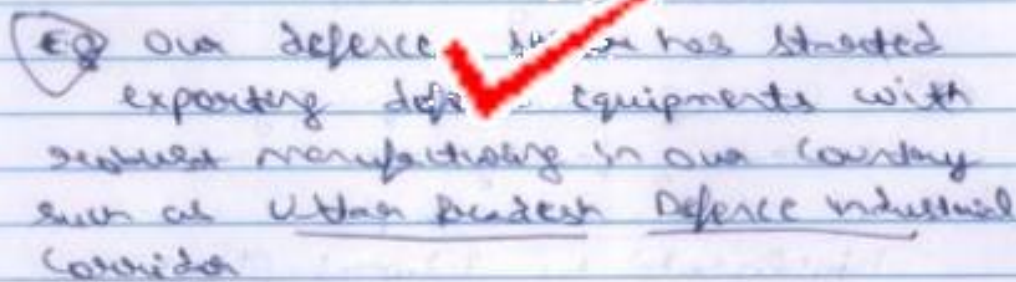 Eg Our defence has started
exporting equipments with
robust manufacturing in our Country
such as Uttar Pradesh Defence industrial
Corridor